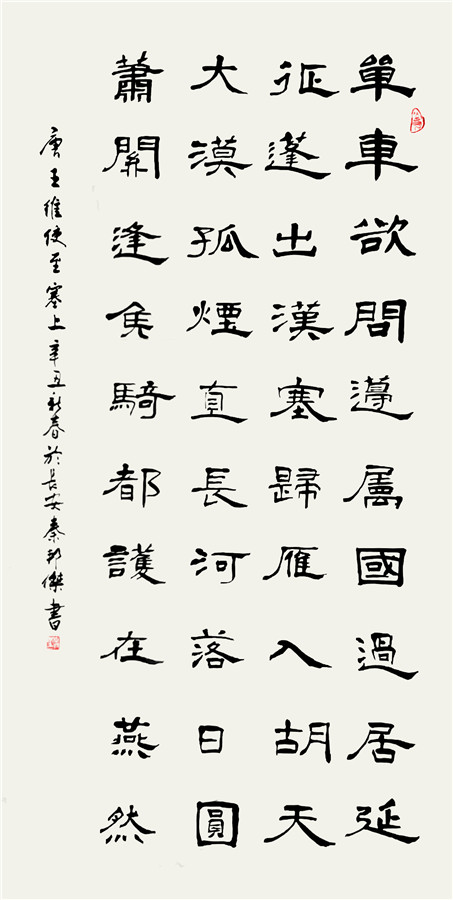 單車欲問邊属國過居延
征蓬出漢塞歸雁入胡天
大漠孤煙直長河落日圓
蕭關逢矦騎都護在燕然
唐王維使至塞上辛丑新春於長安秦邦傑書